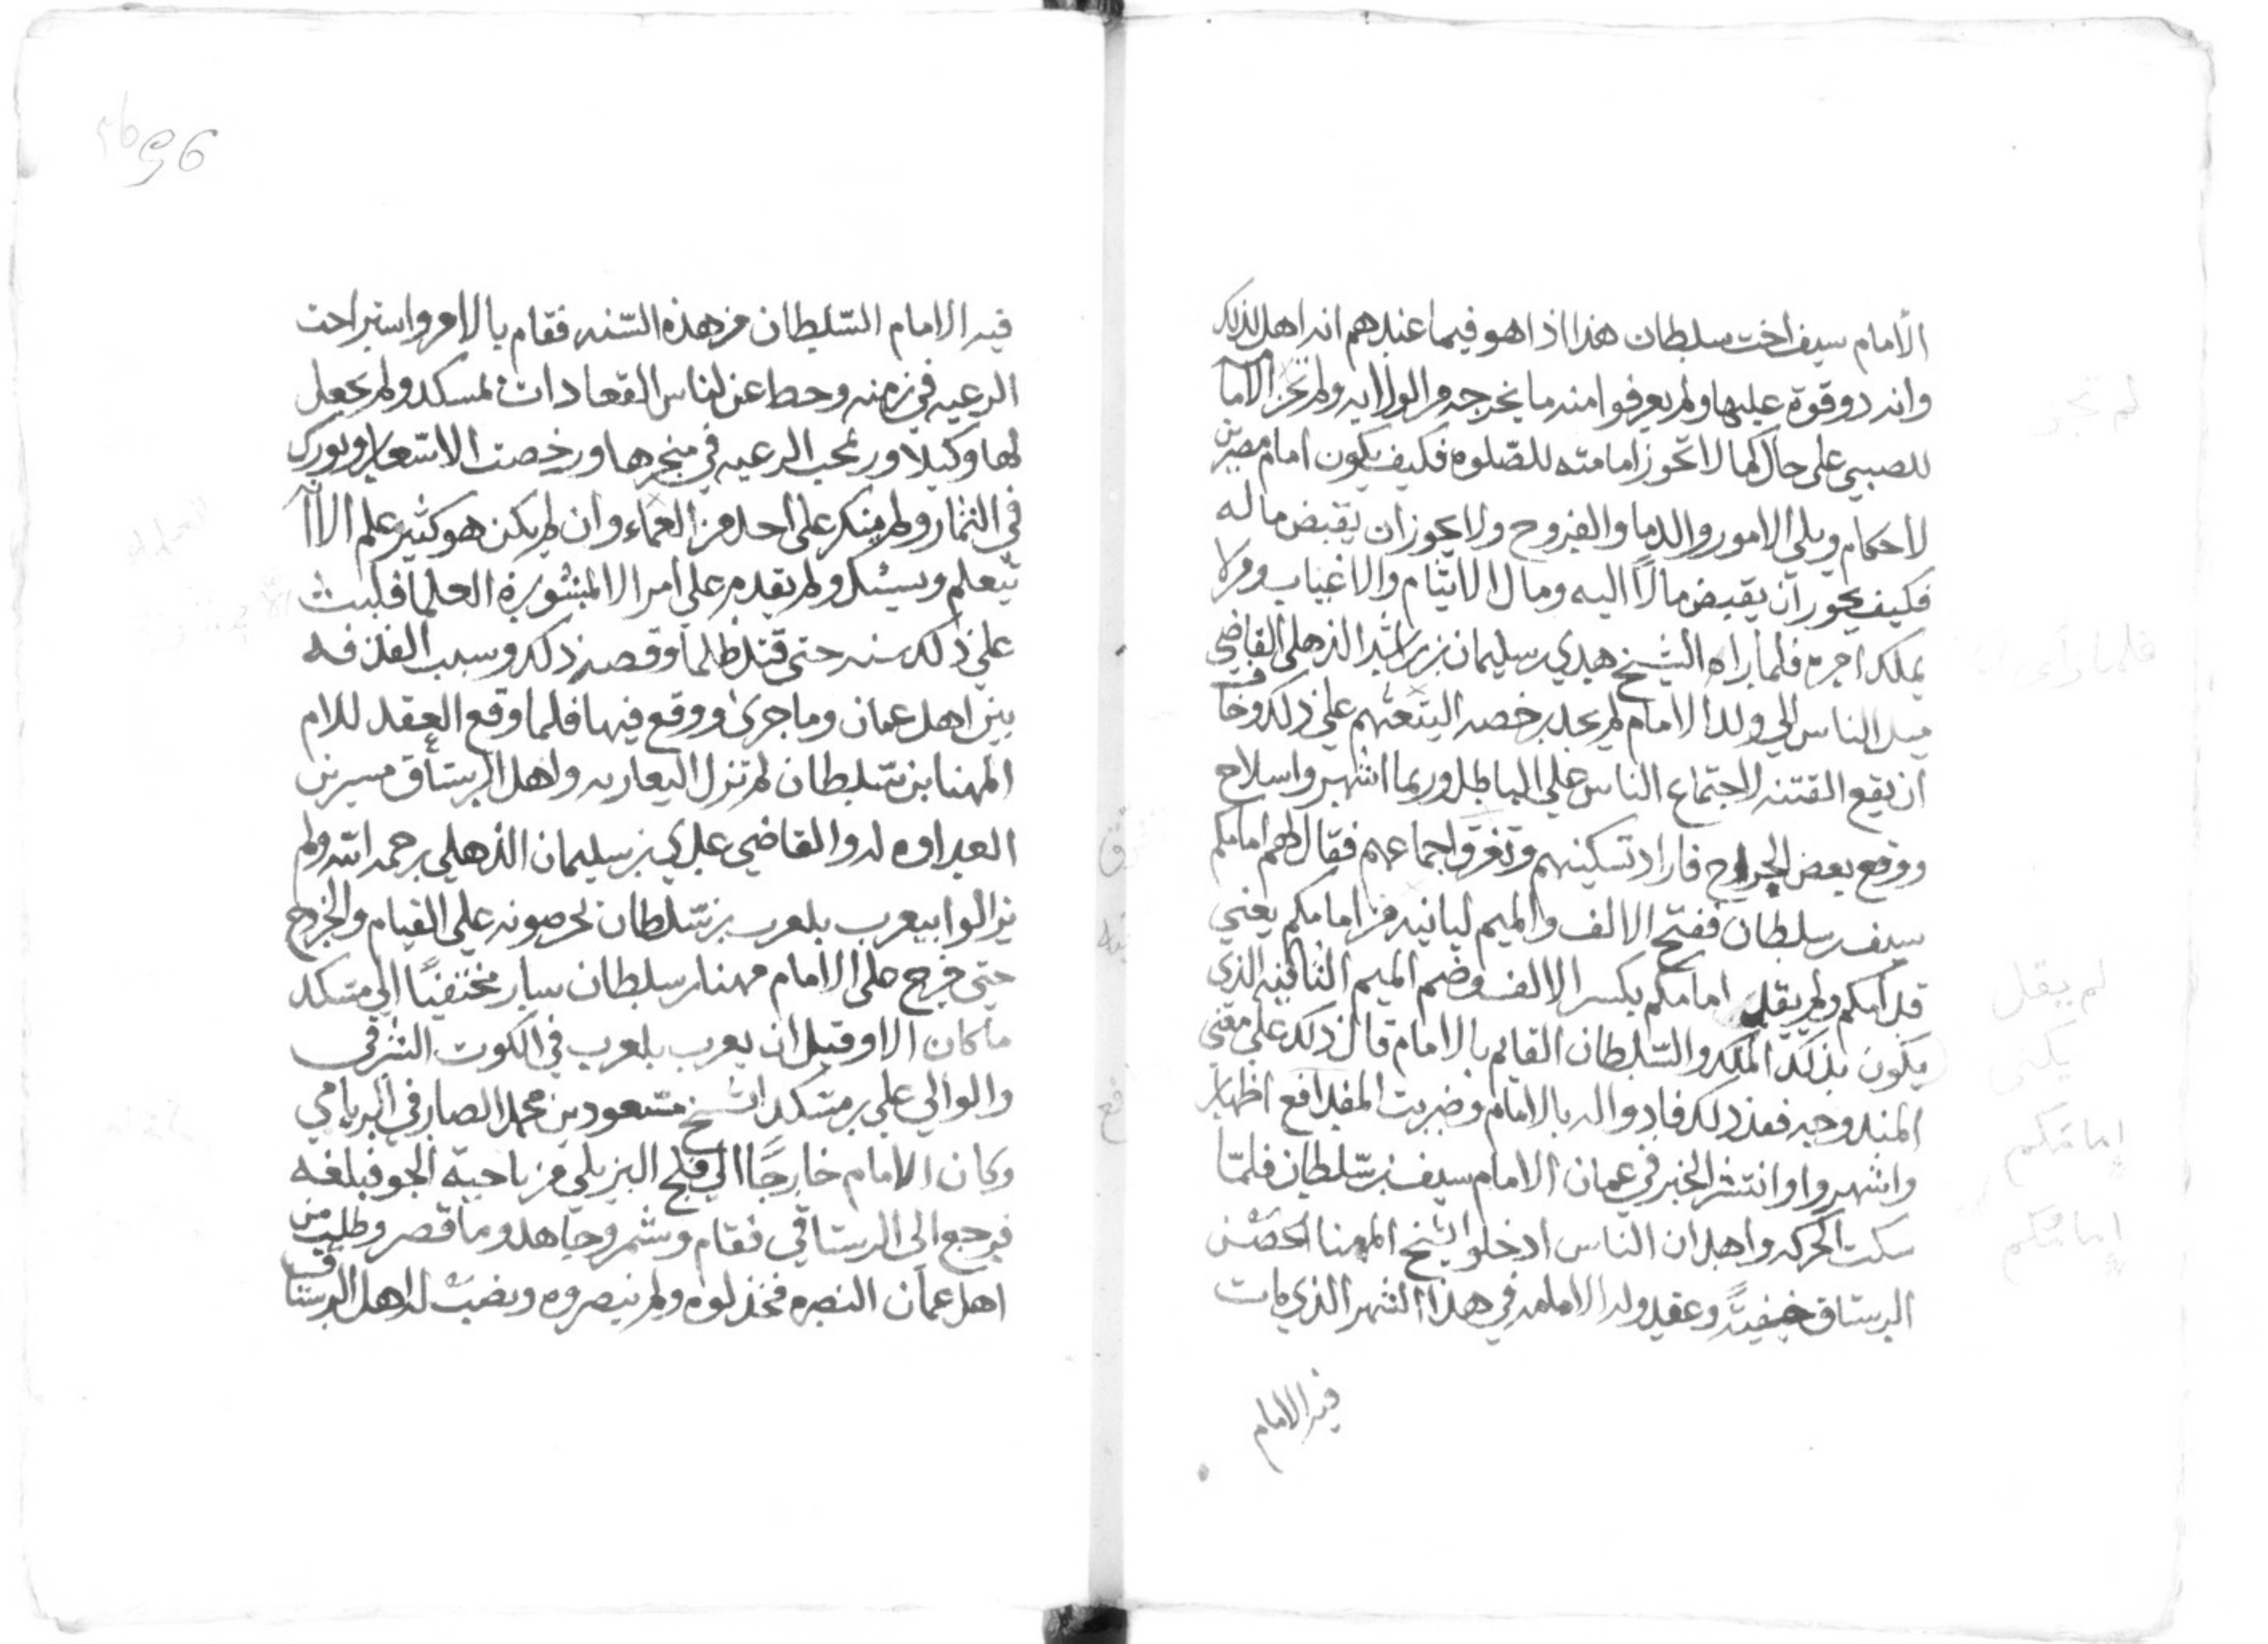 الأمام سيف اخت سلطان هذا اذا هو فيما عندهم انه اهل لذلك
وانه دو قوة عليها ولم يعرفوا منه ما يخرجه من الولايه ولم تجز الاما
للصبي على حال كما لا تجوز امامته للصلوة فكيف يكون امام مصرين
لاحكام ويلي الامور والدما والفروج ولا يجوز ان يقبض ماله
فكيف يجوز ان يقبض مالاً اليه ومال الايتام والاغياب ومن لا
يملك امره فلما راه الشيخ هدي بن سليمان بن راشد الذهلي القاضي
ميل الناس الي ولد الامام لم يجد رخصه اليتعتهم علي ذلك وخا
ان يقع الفتنه لاجتماع الناس علي الباطل وربما اشهر واسلاح
ووقع بعض الجراح فاراد تسكينهم وتفرق اجماعهم فقال لهم امامكم
سيف بن سلطان ففتح الالف والميم لبانيه من امامكم يعني
قدامكم ولم يقل امامكم بكسر الالف وضم الميم الثانيه الذي
يكون بذلك الملك والسلطان القايم بالامام قال ذلك علي معنى
المندوحه فعند ذلك فادواله بالامام وضربت المدافع اظهار
واشهروا وانتشر الخبر في عمان الامام سيف بن سلطان فلما
سكت الحركه واهدان الناس ادخلو الشيخ المهنا الحصن
الرستاق خيفيةً وعقدوله الامامه في هذا الشهر الذي مات
فيه الامام
فيه الامام السلطان من هذه السنه فقام بالامر واستراحت
الرعيه في زمنه وحط عن لناس القعادات لمسكد ولم يجعل
لها وكيلا وربحب الرعيه في متجرها ورخصت الاسعار وبورك
في الثمار ولم ينكر علي احد من العماء وان لم يكن هو كثير علم الاا
يتعلم ويسئل ولم يقدم علي امر الا لمنشورة العلما فلبث
علي ذلك سنه حتي قتل ظلما وقصه ذلك وسبب الفلذفه
بين اهل عمان وما جرى ووقع فيها فلما وقع العقد للام
المهنا بن سلطان لم تزل اليعاربه واهل الرستاق مسرين
العداوه له والقاضي عدي بن سليمان الذهلي رحمه الله ولم
يزالوا بيعرب بلعرب بن سلطان يحرصونه علي القيام والخرج
حتي خرج علي الامام مهنا بن سلطان سار مختفيًا الي مسكد
ما كان الاوقيل ان يعرب بلعرب في الكوت الشرقي
والوالي علي بر مسكد الشيخ مسعود بن محمد الصارفي الريامي
وكان الامام خارجًا الي فلج البزيلي من ناحية الجو فبلغه
فرجع الى الرستاقي فقام وشمر وجاهد وما قصر وطلب من
اهل عمان النصره فخذلوه ولم ينصروه ونصبت له اهل الرستاق
لم تجز
لم يقل
يكون
امامكم
امامكم
96